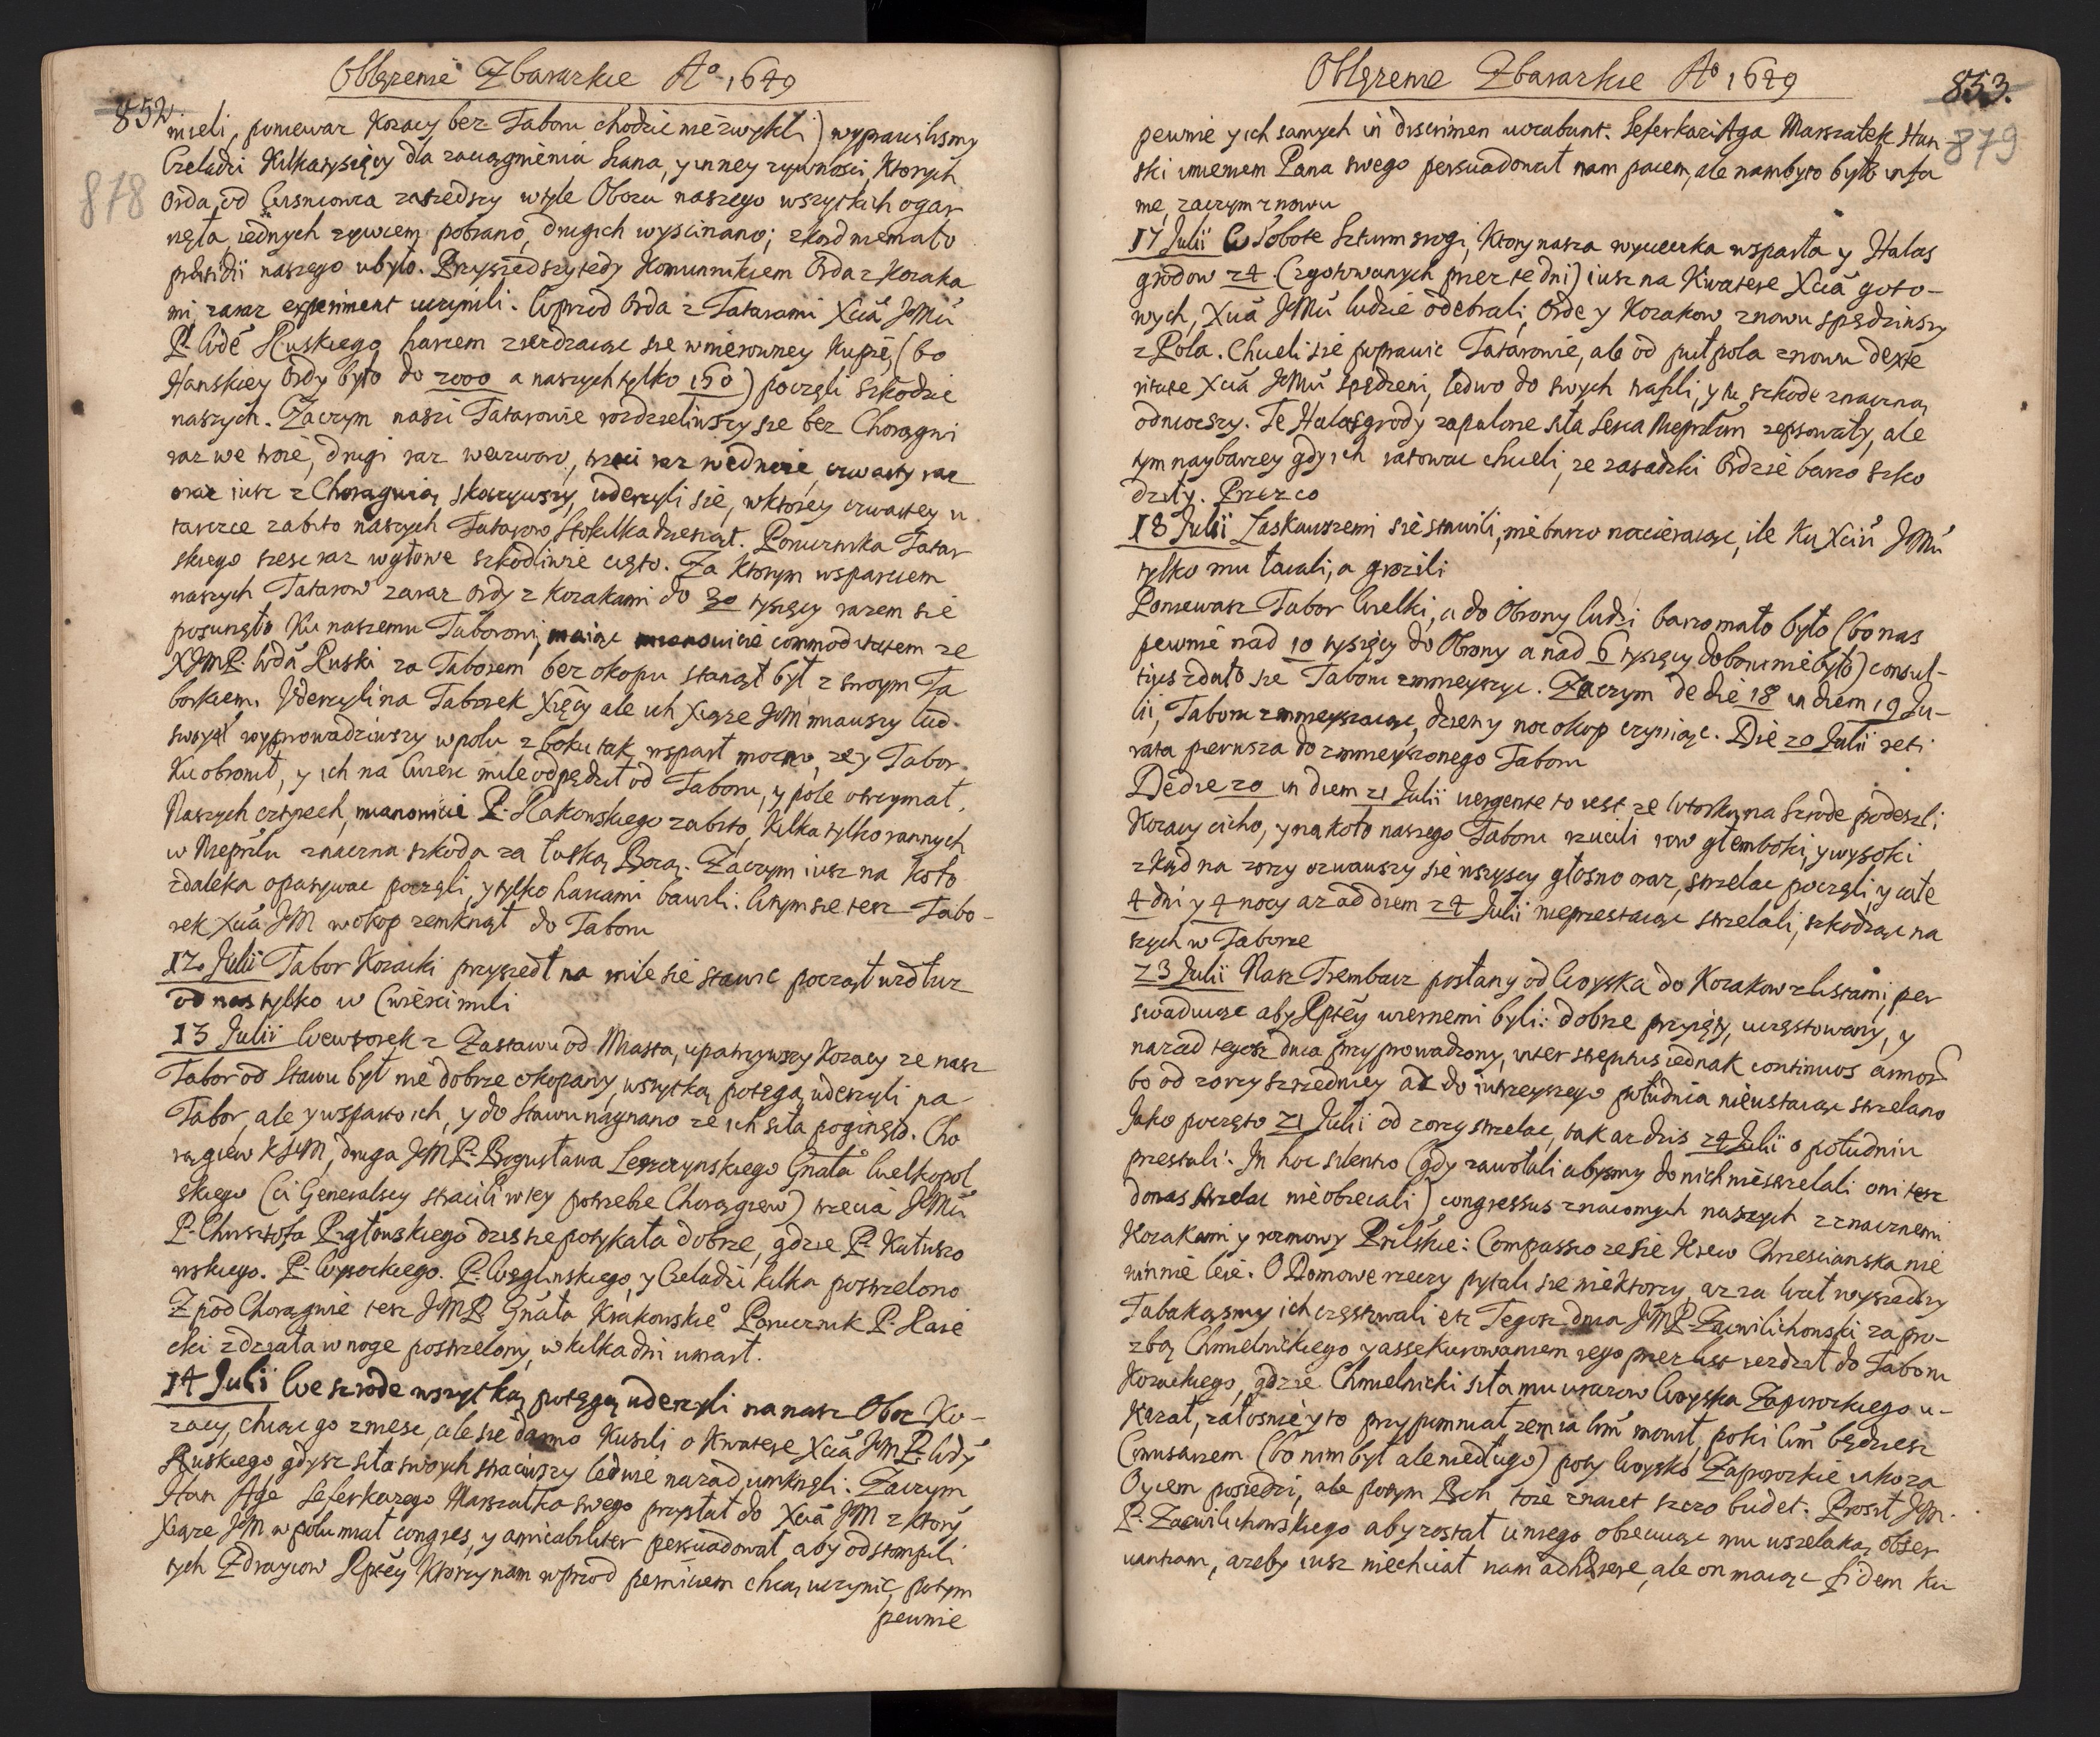 Oblęzenie Zbarazkie Aº 1649
852
878
mieli, poniewaz Kozacy bez Taboru chodzic niezwykli) wyprawilismy
Czeladzi Kilkatysięcy dla zaciągnienia Siana, y inney zywnosci, Ktorych
Orda, od Czerniowca zaszedszy wtyle Obozu naszego wszytkich ogar
nęła, iednych zywcem pobrano, drugich wyscinano; zkąd niemało
praesidii naszego ubyło. Przyszedszy tedy Komunnikiem Orda z Kozaka
mi, zaraz experiment uczynili. Wprzod Orda z Tatarami Xcia JMci
P. Wdę Ruskiego, harcem zwodzaiąc sie wnierowney Kupie, (bo
Hanskiey Ordy było do 2000 a naszych tylko 150) poczęli szkodzic
naszych. Zaczym naszi Tatarowie rozdzieliwszy sie bez Chorągwi
raz we troie, drugi raz weczworo, trzeci raz wednoie, czwarty raz
oraz iusz z Chorągwią skoczywszy, uderzyli się, w ktorey czwartey u
tarczce zabito naszych Tatarow Stokilkadziesiąt. Porucznika Tatar
skiego szesc raz wgłowe szkodliwie cięto. Za Ktorym wsparciem
naszych Tatarow zaraz Ordy z Kozakami do 30 tysięcy razem sie
posunęło Ku naszemu Taborowi, maiąc mianowicie commoditatem ze
XJMP. Wda Ruski za Taborem bez okopu stanął był z swoym Ta
borkiem. Uderzyli na Taborek Xięcy ale ich Xiąze JM miawszy lud
swoy wyprowadziwszy w polu z boku tak wsparł mocno, ze y Tabor
Ku obronił, y ich na Cwierc mile odpędził od Taboru, y pole otrzymał.
Naszych cztyrech, mianowicie P. Rakowskiego zabito, Kilka tylko rannych
w Nieprzlu znaczna szkoda za łaską Bozą. Zaczym iusz na Koło
zdaleka opasywac poczęli, y tylko harcami bawili. Wtym sie tesz Tabo-
rek Xcia JM w okop zemknął do Taboru
12. Julii Tabor Kozacki przyszedł na mile sie stawic począł wzdłuz
od nas tylko w Cwierci mili
13 Julii Wewtorek z Zastawu od Miasta, upatrzywszy Kozacy ze nasz
Tabor od Stawu był nie dobrze okopany, wszytką potęgą uderzyli na
Tabor, ale y wsparto ich, y do Stawu nagnano ze ich siła poginęło. Cho
rągiew KJM, druga JMP. Bogusława Leszczynskiego Gnała Wielkopol
skiego (ci Generalscy stracili w tey potrzebie Chorągiew) trzecia JMci
P. Chrisztofa Przyłowskiego dzis sie potykała dobrze, gdzie P. Katuszo
wskiego. P. Wysockiego. P. Węglinskiego, y Czeladzi kilka postrzelono
Z pod Chorągwie tesz JMP Gnała Krakowskie Porucznik P. Rase
cki z działa w noge postrzelony, w kilka dni umarł.
14 Julii We szrode wszytką potęgą uderzyli na nasz Oboz Ko-
zacy, chcąc go zniesc, ale sie darmo Kusili o Kwatere Xcia JMP. Wdy
Ruskiego gdysz siła swoych straciwszy ledwie nazad umknęli: Zaczym
Han Age Seferkazego Marszałka swego przysłał do Xcia JM z ktory
Xiąze JM w polu miał congres, y amicabiliter persuadował aby odstąmpili
tych Zdraycow Rptey Ktorzy nam wprzod perniciem chcą uczynic, potym
pewnie
Oblęzenie Zbarazkie Aº 1649
853.
879
pewnie y ich samych in discrimen vocabunt. Seferkazi Aga Marszałek Han
ski imieniem Pana swego persuadował nam pacem, ale nam było byłe infa
me, zaczym znowu
17 Julii W Sobote Szturm srogi, Ktory nasza wycieczka wsparła y Halas
grodow 24 (zgotowanych przez te dni) iusz na Kwatere Xcia goto-
wych, Xcia JMci ludzie odebrali, Orde y Kozakow znowu spędziwszy
z Pola. Chcieli sie poprawic Tatarowie, ale od pułpola znowu dexte
ritate Xcia JMci spędzeni, ledwo do swych trafili, y tu szkode znaczną
odniozszy. Te Halasgrody zapalone siła serca Nieprzlom zepsowały, ale
tym naybarzey gdy ich ratowac chcieli, ze zasadzki Ordzie barzo szko
dziły. Przez co
18 Julii Łaskawszemi sie stawili, nie barzo nacieraiąc, ile Ku Xciu JMci
tylko mu łaiali, a grozili
Poniewasz Tabor Wielki, a do Obrony ludzi barzo mało było (bo nas
pewnie nad 10 tysięcy do Obrony a nad 6 tysięcy dobruc nie było) consul-
tius zdało sie Taboru zmnieyszyc. Zaczym de die 18 in diem 19 Ju-
lii, Taboru zmnieyszaiąc, dzien y noc okop czyniąc. Die 20 Julii reti
rata pierwsza do zmnieyszonego Taboru
De die 20 in diem 21 Julii vergente to iest, ze Wtorku na Szrode podeszli
Kozacy cicho, y na koło naszego Taboru rzucili row głemboki, y wysoki
zkąd na zorzy ozwawszy sie wszyscy głosno oraz, strzelac poczęli, y całe
4 dni y 4 nocy az ad diem 24 Julii nieprzestaiąc strzelali, szkodząc na
szych w Taborze
23 Julii Nasz Trembacz posłany od Woyska do Kozakow z listami, per
swaduiąc aby Rptey wiernemi byli: dobrze przyięty, uczęstowany, y
nazad tegosz dnia przyprowadzony, inter strepitus iednak continuos armor
bo od zorzy szrzedniey az do iutrzeyszego południa nieustaiąc strzelano
Jako poczęto 21 Julii od zorzy strzelac, tak az dzis 24 Julii o południu
przestali. In hoc silentio (gdy zawołali abysmy do nich niestrzelali oni tesz
do nas strzelac nieobiecali) congressus znaiomych naszych z znacznemi
Kozakami y rozmowy Przilskie: Compassio ze sie Krew Chrzescianska nie
winnie leie. O Domowe rzeczy pytali sie niektorzy, az za wał wyszedszy
Tabakąsmy ich częstowali etc Tegosz dnia JMP. Zacwilichowski za pro-
zbą Chmielnickiego y assekurowaniem iego przez list iezdził do Taboru
Kozackiego, gdzie Chmielnicki siła mu urazow Woyska Zaporozkiego u-
kazał, załosnie y to przypominał zem ia wm mowił, poki wm będziesz
Comisarzem (bo nim był ale niedługo) poty Woysko Zaporozkie iako za
Oycem posiedzi, ale potym Boh toie znaiet szczo budet. Prosił JM.
P. Zacwilichowskiego aby został u niego obiecuiąc mu wszelaką obser
vantiam, azeby iusz niechciał nam adhaerere, ale on maiąc fidem Ku